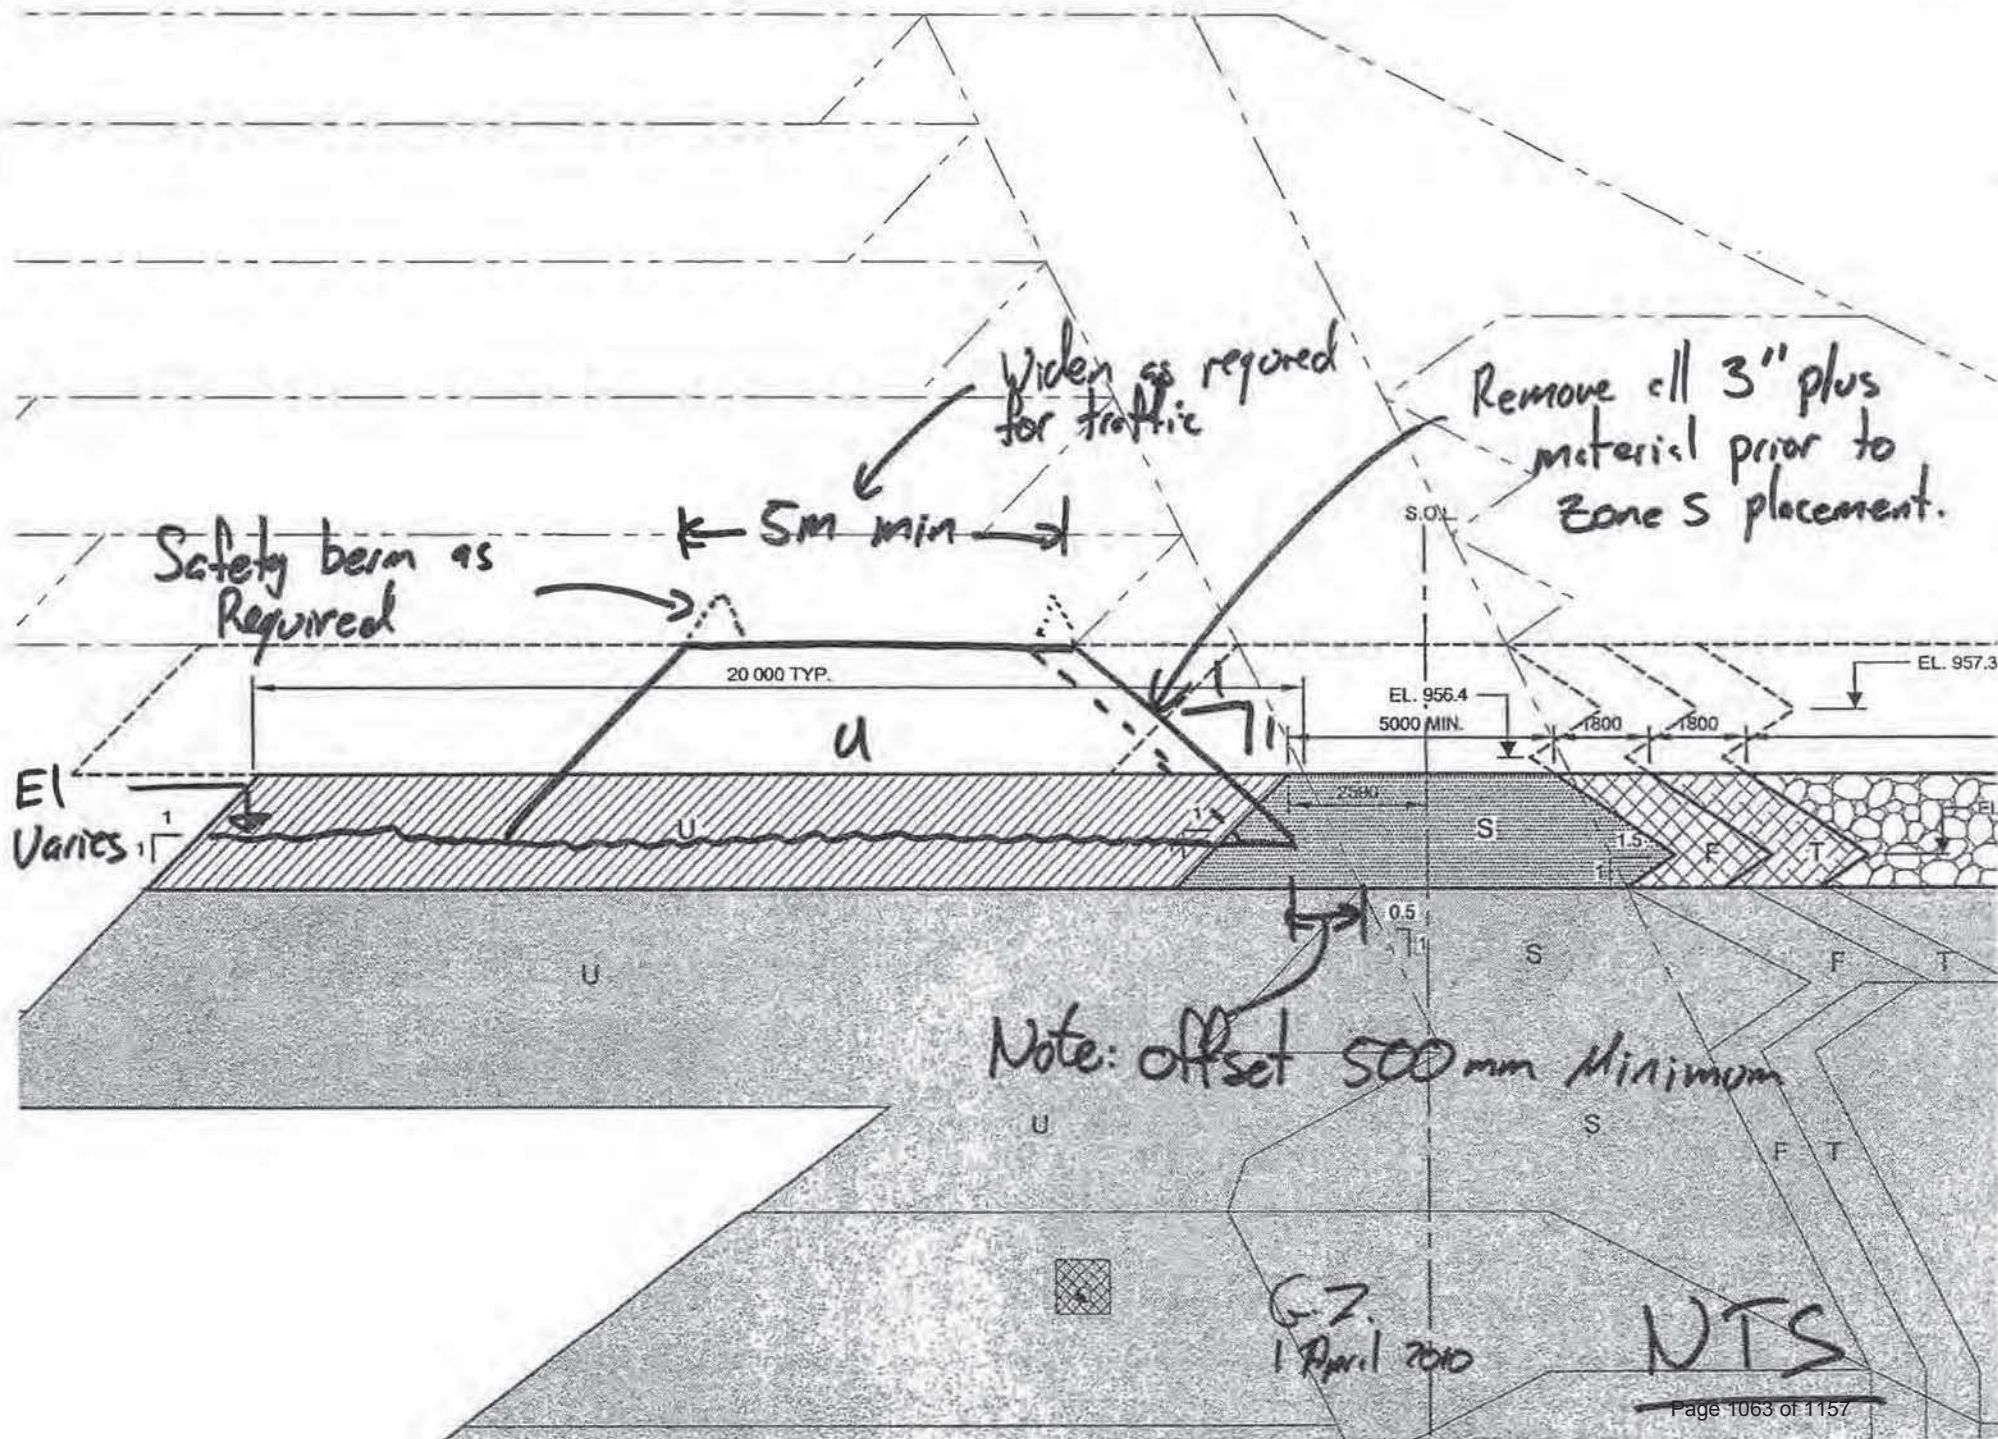 Widen as requred
for traffic
Remove all 3" plus
material prior to
Zone S placement.
5m min
S.O.L.
Safety berm as
Required
20 000 TYP.
1
1
EL. 957.3
EL. 956.4
5000 MIN.
1800
1800
U
El
Varies
1
1
2500
U
1
1
S
1.5
1
F
T
EL
0.5
1
U
S
F
T
Note: offset 500mm Minimum
U
S
F
T
G.Z.
1 April 2010
NTS
Page 1063 of 1157